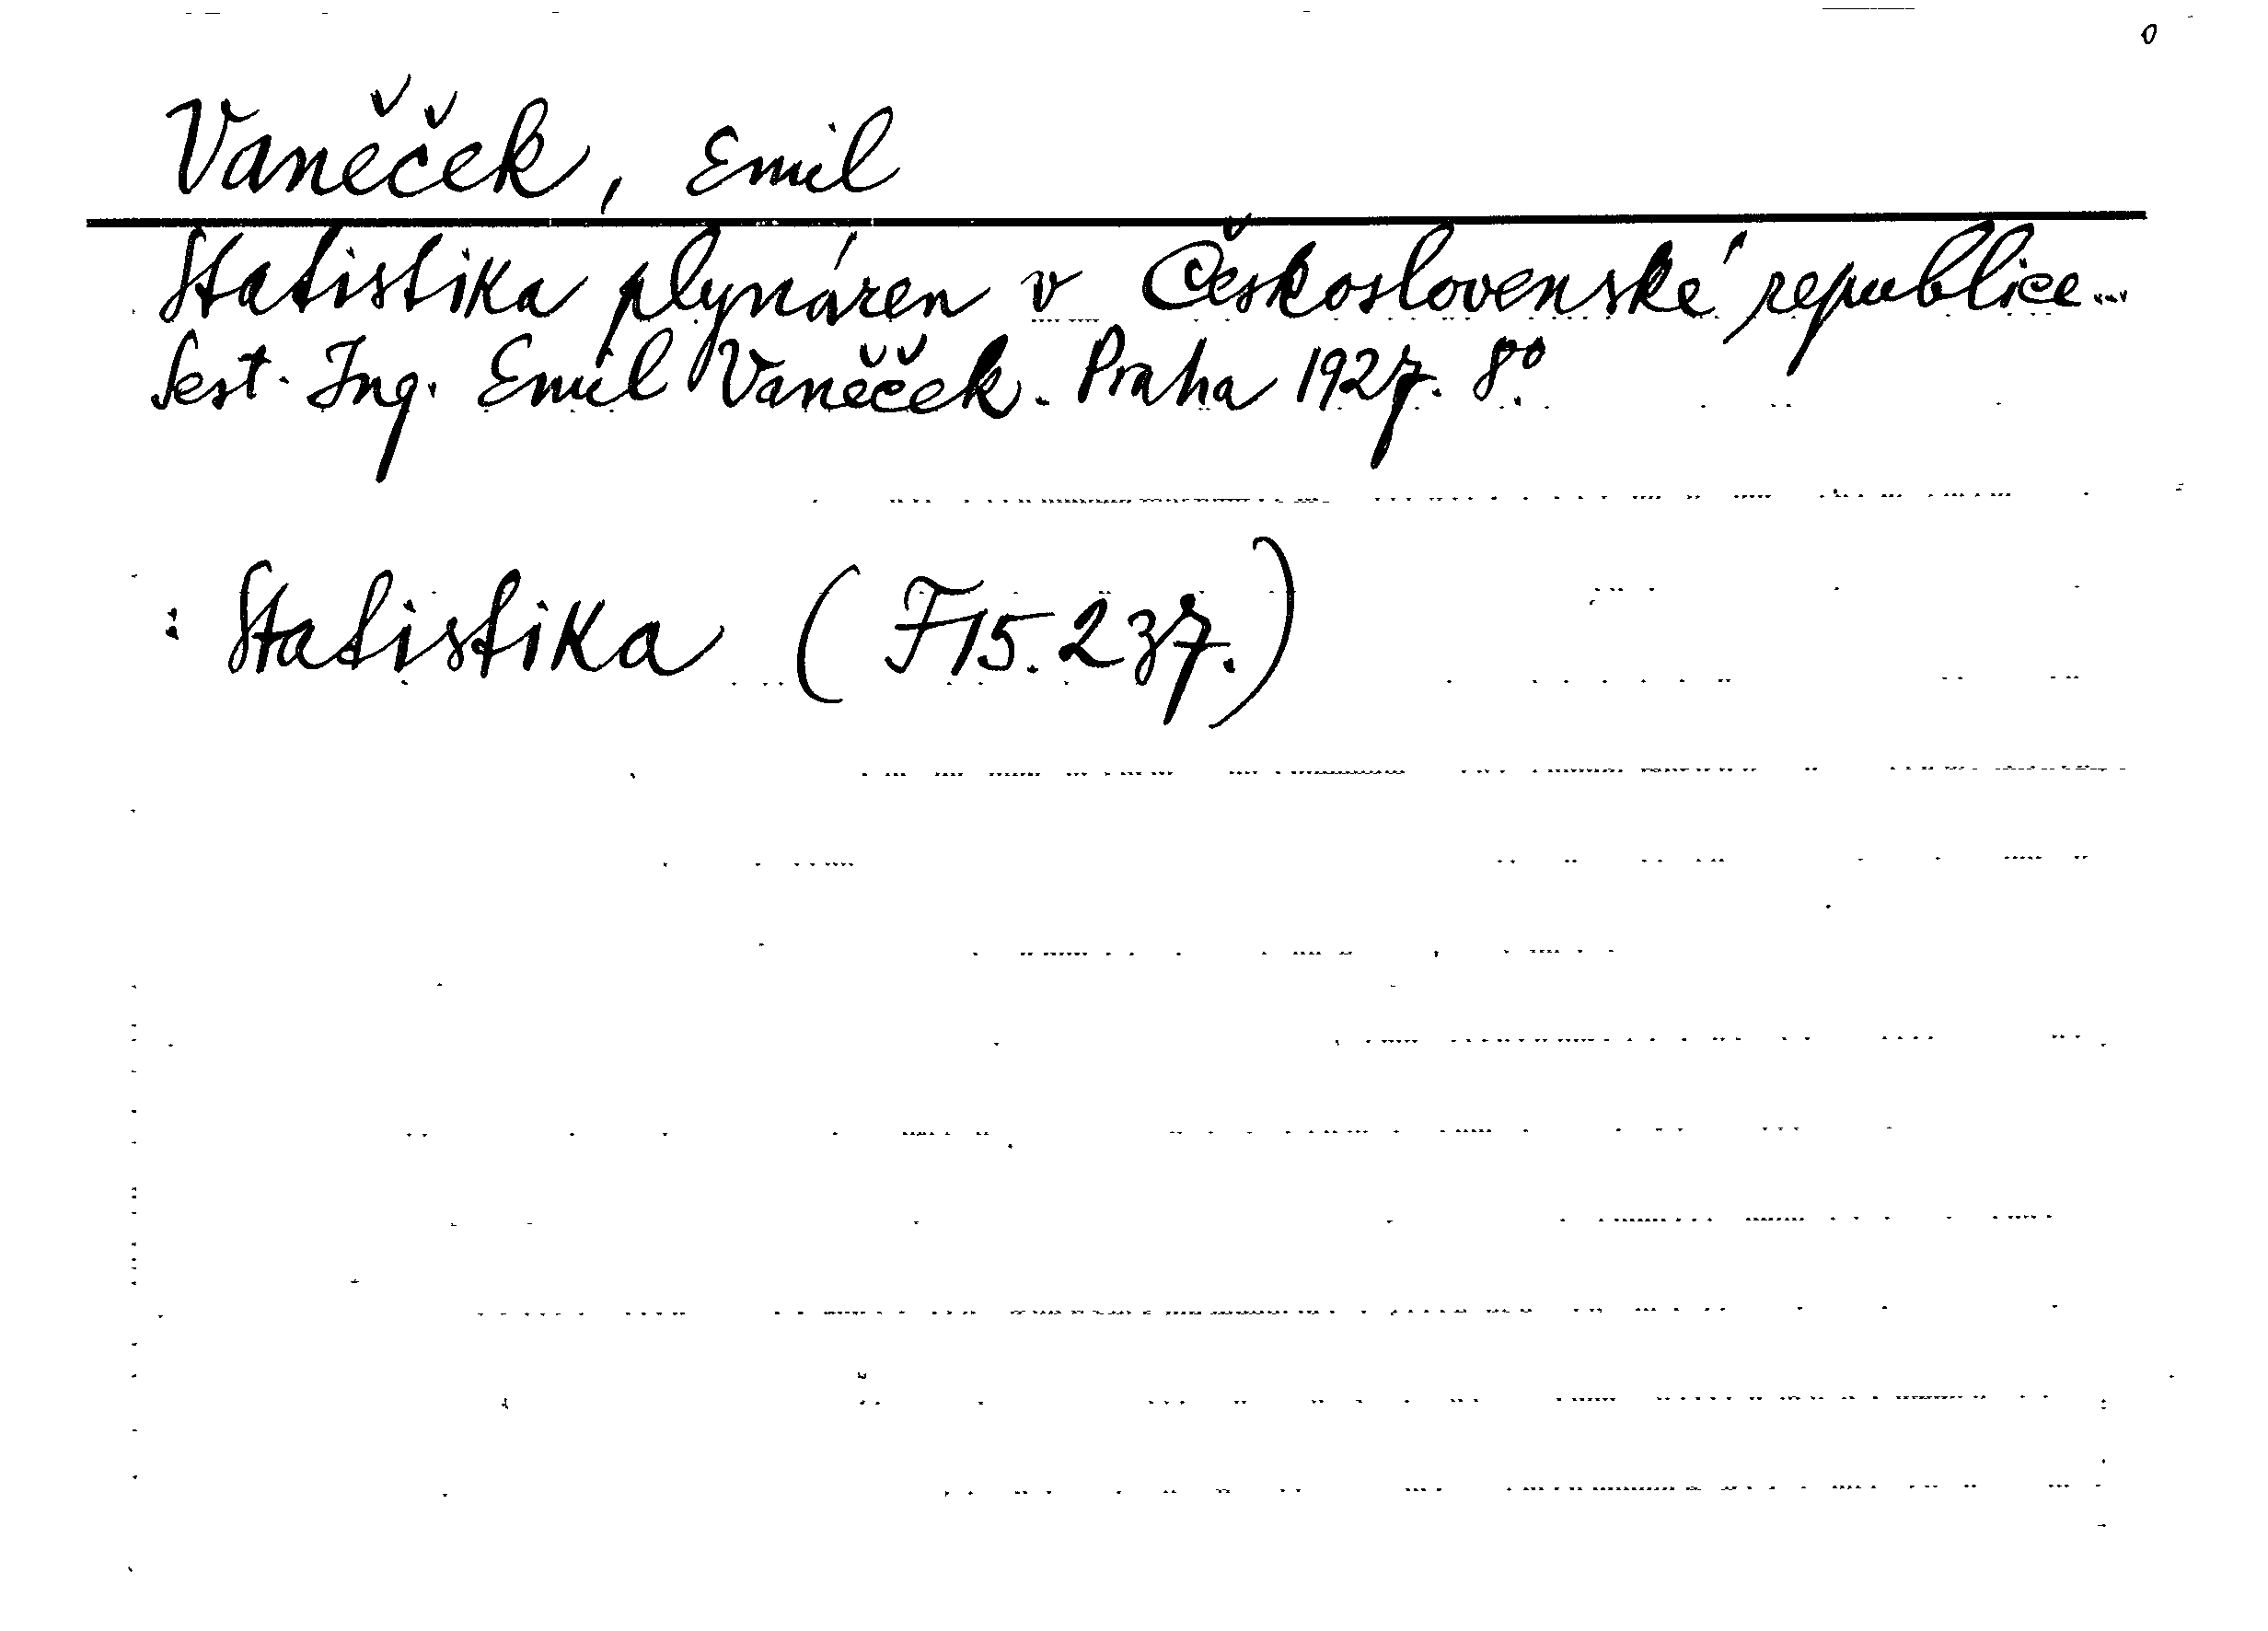 Vaněček, Emil
Statistika plynáren v Československé republice...
Sest. Ing. Emil Vaněček. Praha 1927. 8°.
: Statistika (F15.237.)